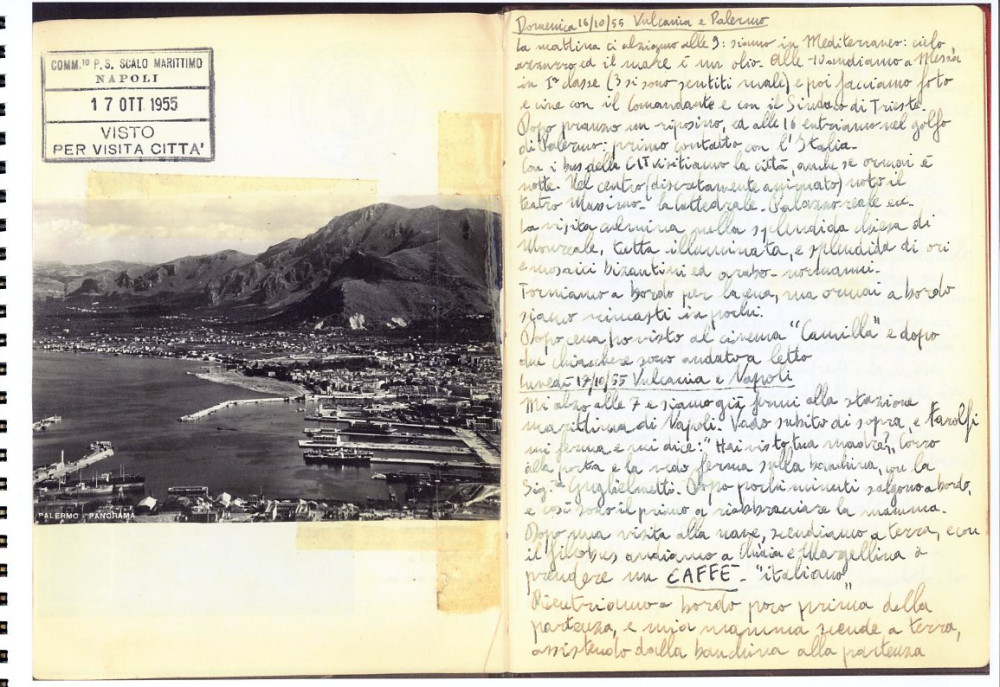 COMM.TO P.S. SCALO MARITTIMO
NAPOLI
17 OTT 1955
VISTO
PER VISITA CITTA'
PALERMO - PANORAMA
Domenica 16/10/55 Vulcania e Palermo
La mattina ci alziamo alle 9: siamo in Mediterraneo: cielo
azzurro ed il mare è un olio. Alle 10 andiamo a Messa
in Iª classe (3 si sono sentiti male) e poi facciamo foto
e cine con il Comandante e con il Sindaco di Trieste.
Dopo pranzo un riposino, ed alle 16 entriamo nel golfo
di Palermo: primo contatto con l'Italia.
Con i bus della CIT visitiamo la città, anche se ormai è
notte. Nel centro (discretamente antiquato) noto il
teatro Massimo - la Cattedrale - Palazzo reale ecc.
La visita culmina nella splendida chiesa di
Monreale, tutta illuminata, e splendida di ori
e mosaici bizantini ed arabo-normanni.
Torniamo a bordo per la cena, ma ormai a bordo
siamo rimasti in pochi.
Dopo cena ho visto al cinema "Camilla" e dopo
due chiacchere sono andato a letto
Lunedì 17/10/55 Vulcania e Napoli
Mi alzo alle 7 e siamo già fermi alla stazione
marittima di Napoli. Vado subito di sopra, e Farolfi
mi ferma e mi dice: "Hai visto tua madre", corro
alla porta e la vedo ferma sulla banchina, con la
Sig.ra Guglielmetti. Dopo pochi minuti salgono a bordo,
e così sono il primo a riabbracciare la mamma.
Dopo una visita alla nave, scendiamo a terra, e con
il filobus andiamo a Chiaia e Margellina a
prendere un CAFFÈ - "italiano"
Rientriamo a bordo poco prima della
partenza, e mia mamma scende a terra,
assistendo dalla banchina alla partenza